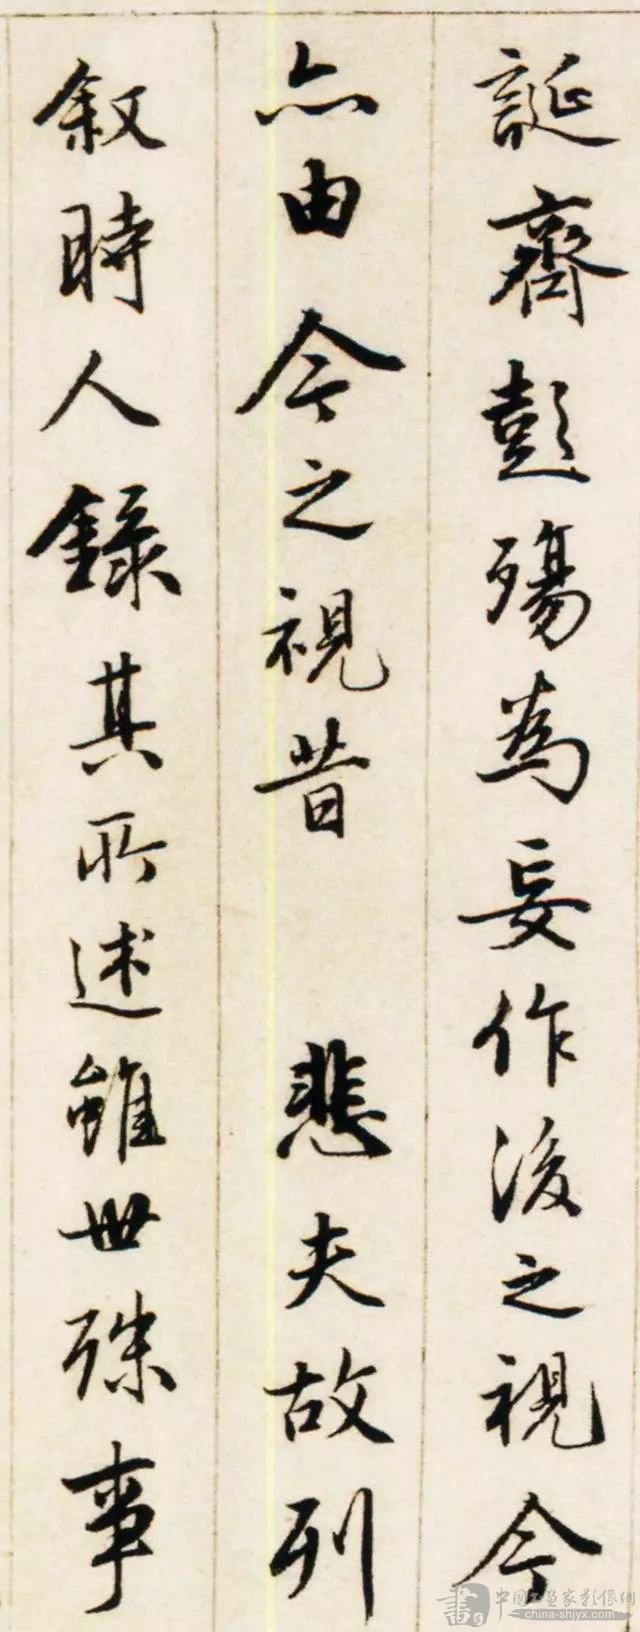 誕齊彭殤為妄作後之視今
亦由今之視昔 悲夫故列
敘時人錄其所述雖世殊事
中國書画家影像網
china-shjyx.com